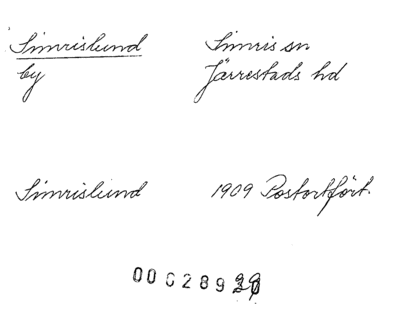 Simrislund
by
Simris sn
Järrestads hd
Simrislund
1909 Postortfört.